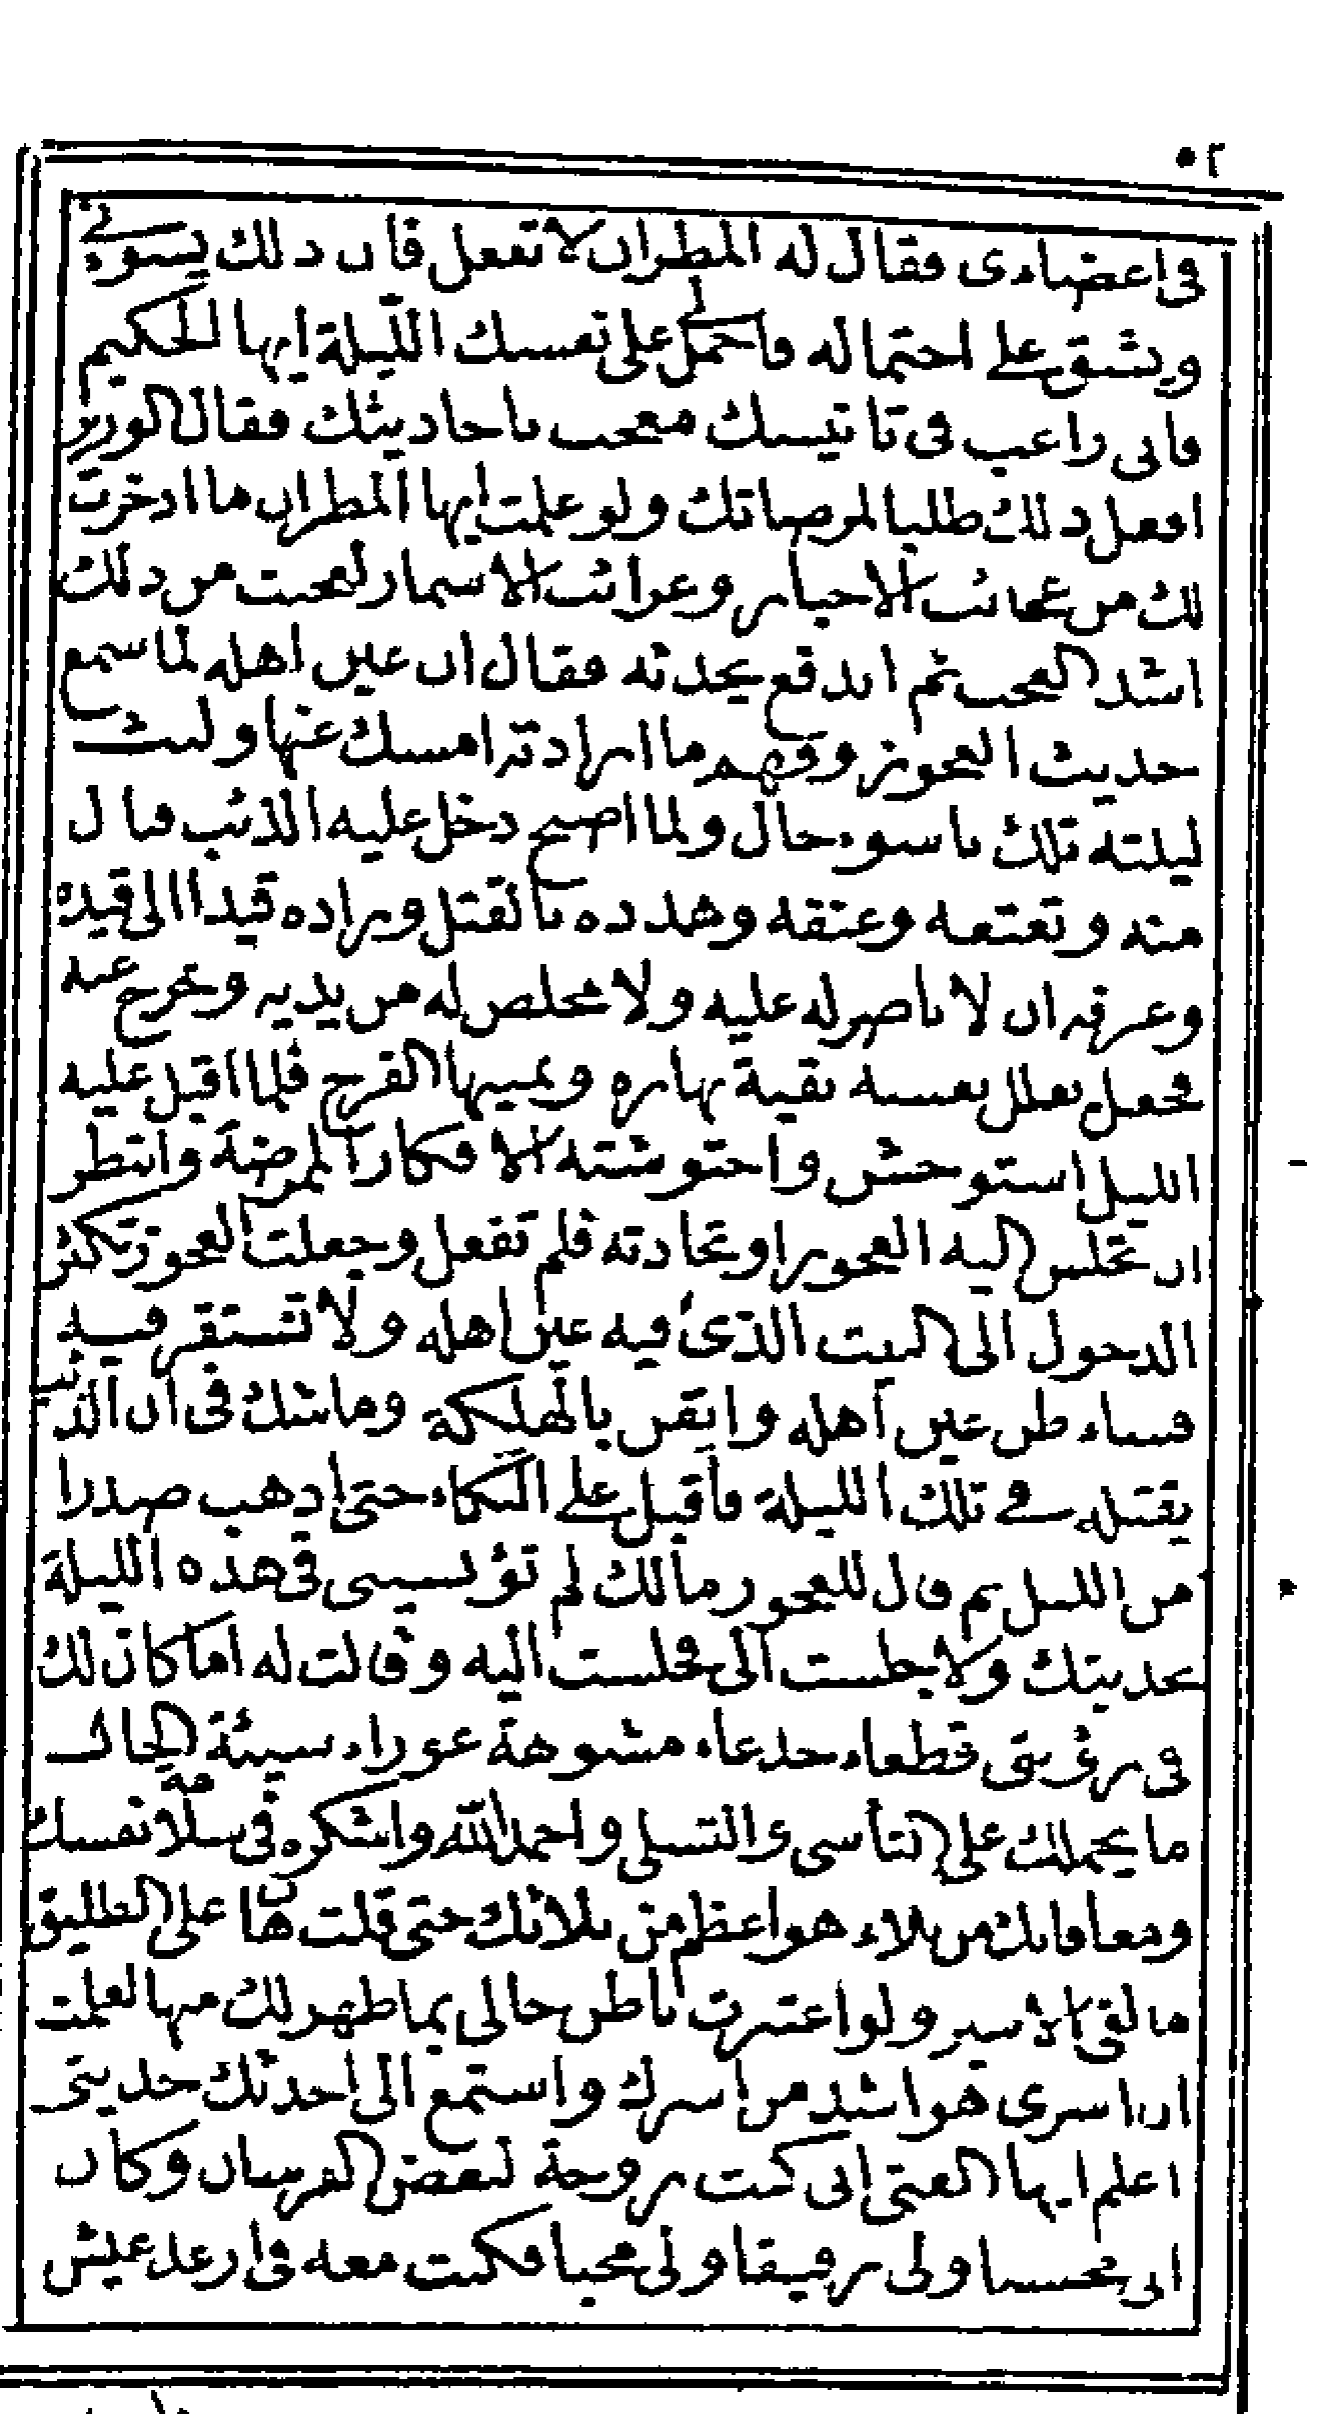 ٥٢
فى اعضاءى فقال له المطران لا تفعل فان ذلك يسوءنى
ويشق على احتماله فاحمل على نفسك الليلة ايها الحكيم
فانى راغب فى تانيسك معجب باحاديثك فقال الوزير
افعل ذلك طلبا لمرضاتك ولو علمت ايها المطران ما ادخرت
لك من عجائب الاخبار وغرائب الاسمار لعجبت من ذلك
اشد العجب ثم اندفع يحدثه فقال ان عين اهله لما سمع
حديث العجوز وفهم ما ارادته امسك عنها ولبث
ليلته تلك باسوء حال ولما اصبح دخل عليه الذئب فنال
منه وتعتعه وعنقه وهدده بالقتل وزاده قيدا الى قيده
وعرفه ان لا ناصر له عليه ولا مخلص له من يديه وخرج عنه
فجعل يعلل نفسه بقية نهاره ويمنيها الفرج فلما اقبل عليه
الليل استوحش واحتوشته الافكار الممرضة وانتظر
ان تجلس اليه العجوز او تحادثه فلم تفعل وجعلت العجوز تكثر
الدخول الى البيت الذى فيه عين اهله ولا تستقر فيه
فساء ظن عين اهله وايقن بالهلكة وما شك فى ان الذئب
يقتله فى تلك الليلة فاقبل على البكاء حتى اذهب صدرا
من الليل ثم قال للعجوز مالك لم تؤنسينى فى هذه الليلة
بحديثك ولا جلست الى فجلست اليه وقالت له اما كان لك
فى رؤيتى قطعاء جدعاء مشوهة عوراء سيئة الحال
ما يحملك على التأسى والتسلى واحمد الله واشكره فى سلامة نفسك
ومعافاتك من بلاء هو اعظم من بلائك حتى قلت هان على الطليق
ما لقى الاسير ولو اعتبرت باطن حالى بما ظهر لك منها لعلمت
ان اسرى هو اشد من اسرك واستمع الى احدثك حديثى
اعلم ايها الفتى انى كنت زوجة لبعض الفرسان وكان
الى محسنا ولى رفيقا ولى محبا فكنت معه فى ارغد عيش